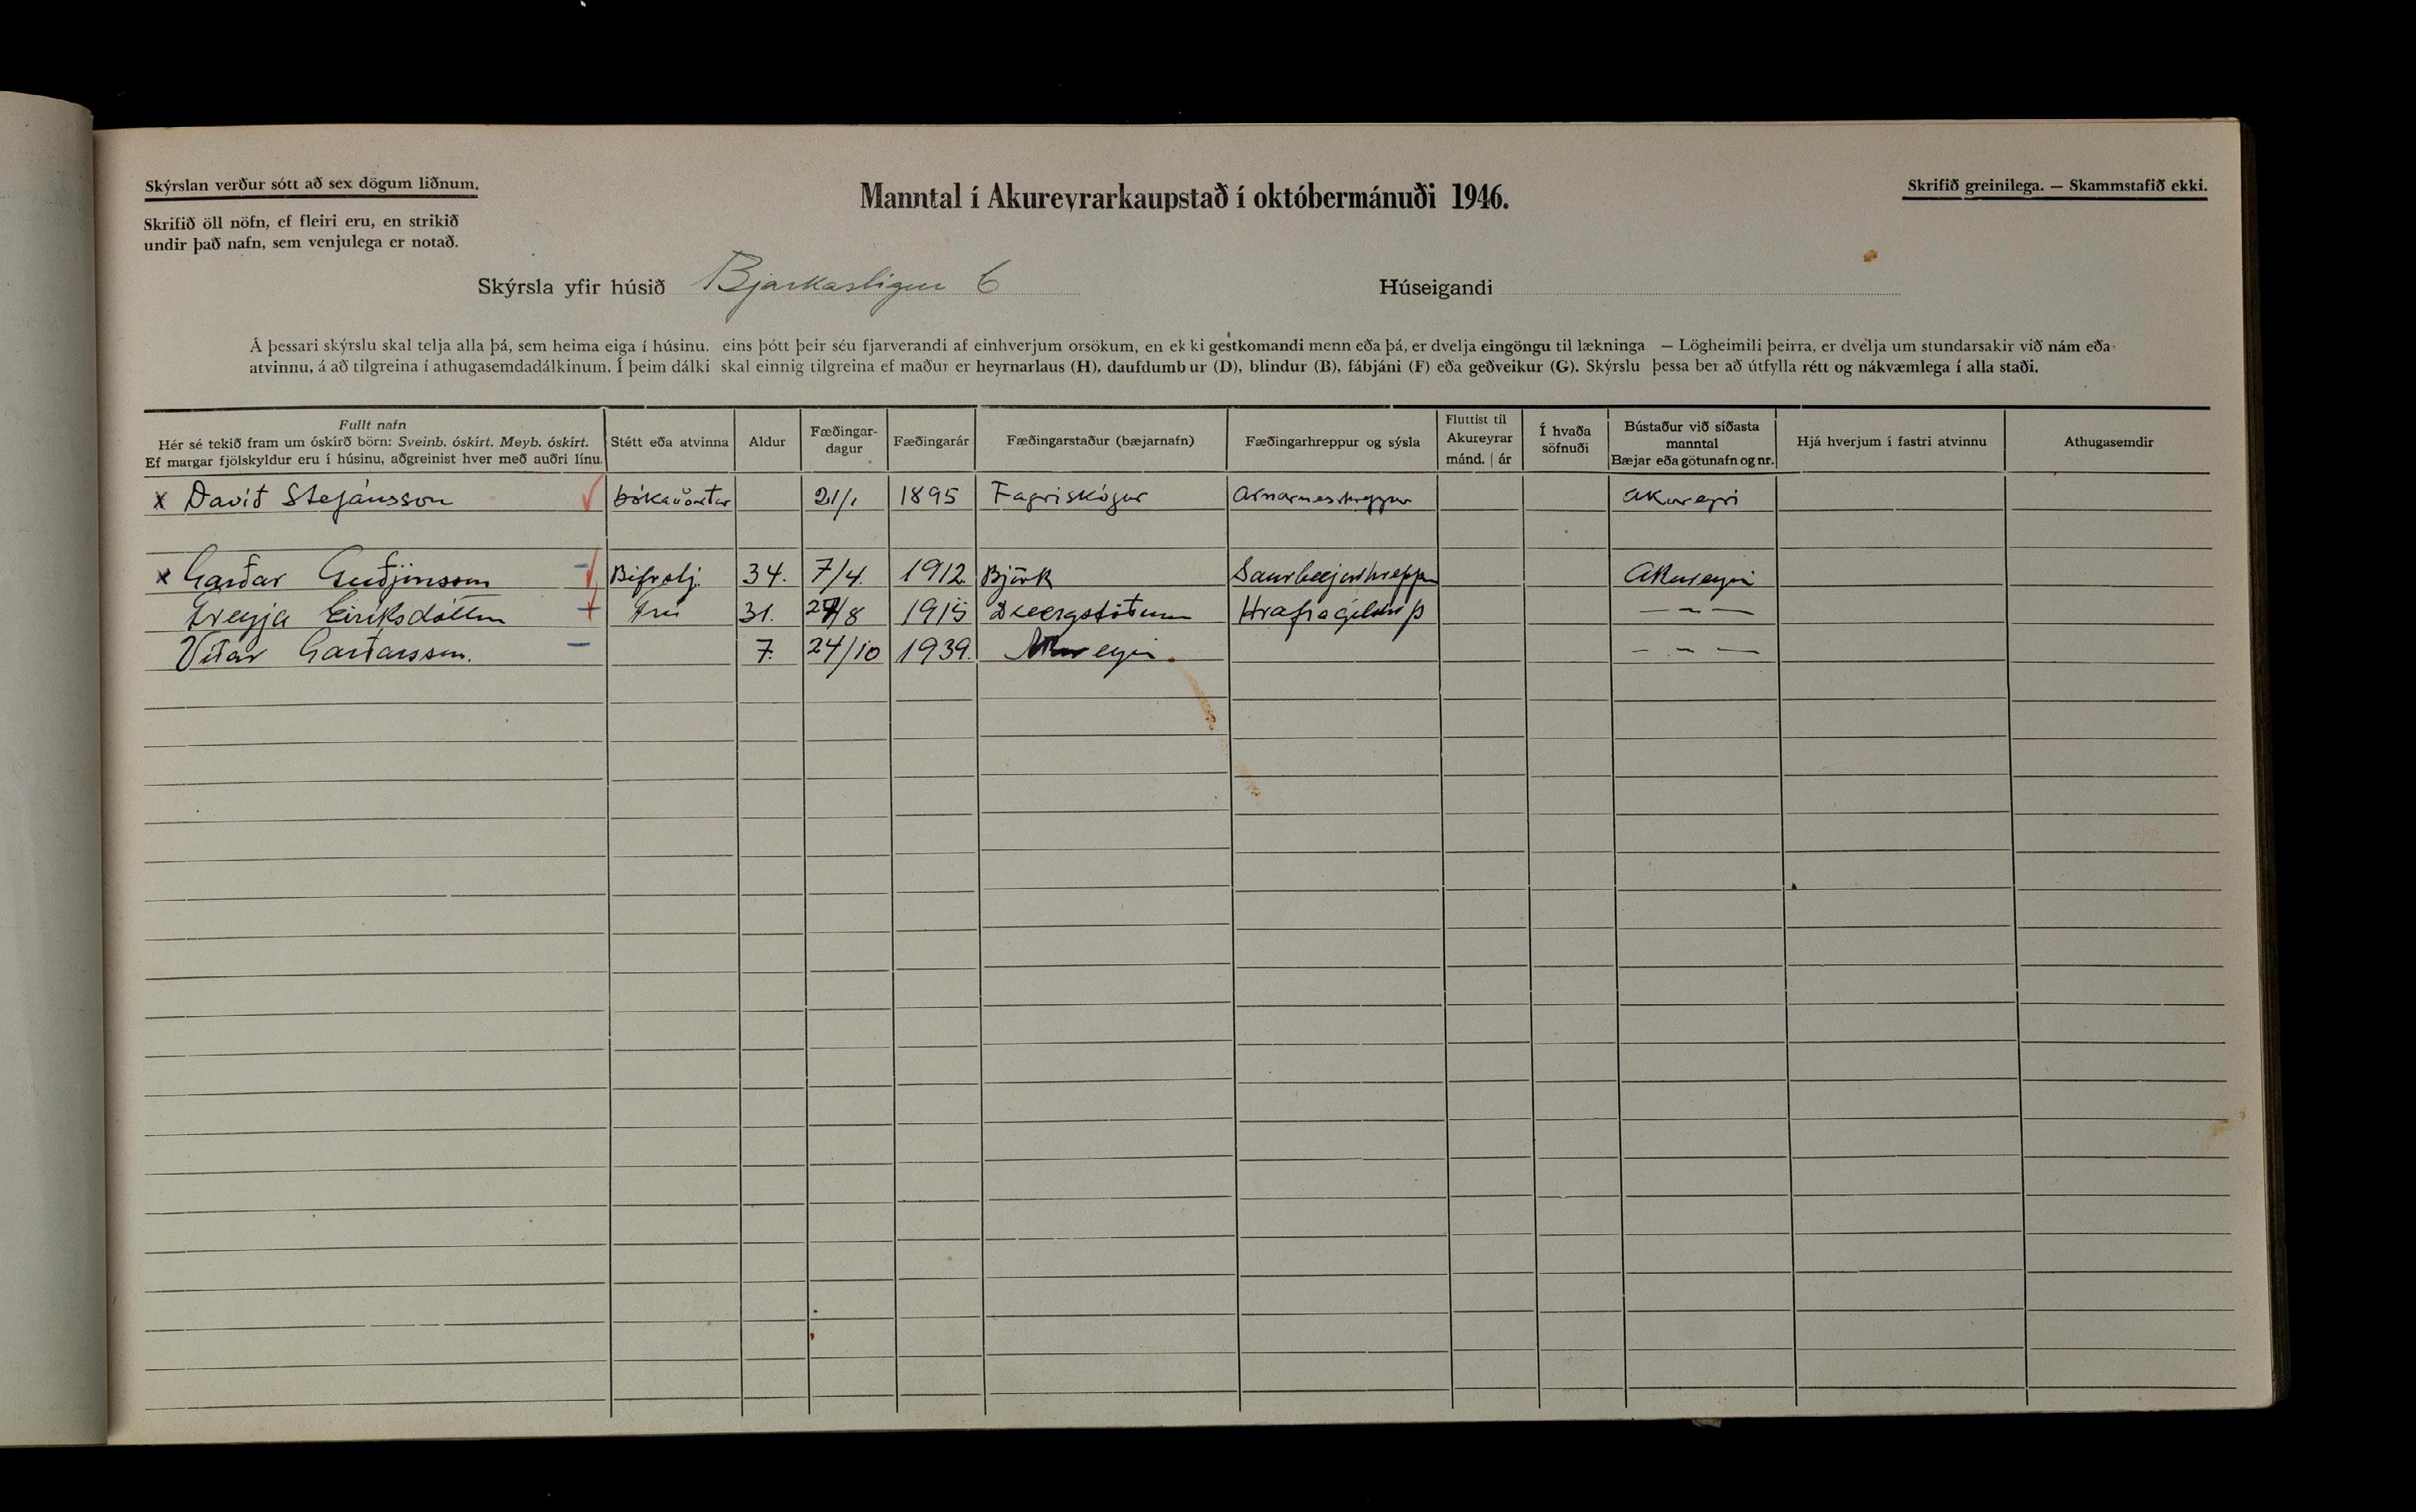 Skýrslan verður sótt að sex dögum liðnum.
Manntal í Akureyrarkaupstað í októbermánuði 1946.
Skrifið greinilega. — Skammstafið ekki.
Skrifið öll nöfn, ef fleiri eru, en strikið
undir það nafn, sem venjulega er notað.
Skýrsla yfir húsið Bjarkastígur 6 Húseigandi
Á þessari skýrslu skal telja alla þá, sem heima eiga í húsinu. eins þótt þeir séu fjarverandi af einhverjum orsökum, en ek ki gestkomandi menn eða þá, er dvelja eingöngu til lækninga — Lögheimili þeirra, er dvelja um stundarsakir við nám eða
atvinnu, á að tilgreina í athugasemdadálkinum. Í þeim dálki skal einnig tilgreina ef maður er heyrnarlaus (H), daufdumb ur (D), blindur (B), fábjáni (F) eða geðveikur (G). Skýrslu þessa ber að útfylla rétt og nákvæmlega í alla staði.
Fullt nafn
Hér sé tekið fram um óskírð börn: Sveinb. óskírt. Meyb. óskírt.
Ef margar fjölskyldur eru í húsinu, aðgreinist hver með auðri línu.
Stétt eða atvinna
Aldur
Fæðingar-
dagur
Fæðingarár
Fæðingarstaður (bæjarnafn)
Fæðingarhreppur og sýsla
Fluttist til
Akureyrar
mánd. | ár
Í hvaða
söfnuði
Bústaður við síðasta
manntal
Bæjar eða götunafn og nr.
Hjá hverjum í fastri atvinnu
Athugasemdir
x Davíð Stefánsson bókavörður 21/1 1895 Fagriskógur Arnarneshreppur Akureyri
x Garðar Guðjónsson Bifrstj. 34. 7/4. 1912. Björk Saurbæjarhreppur Akureyri
Freyja Eiríksdóttir Frú 31. /8 1915 Hrafnagilshrp — ~ —
Viðar Garðarsson. 7. 24/10 1939. Akureyri. — ~ —